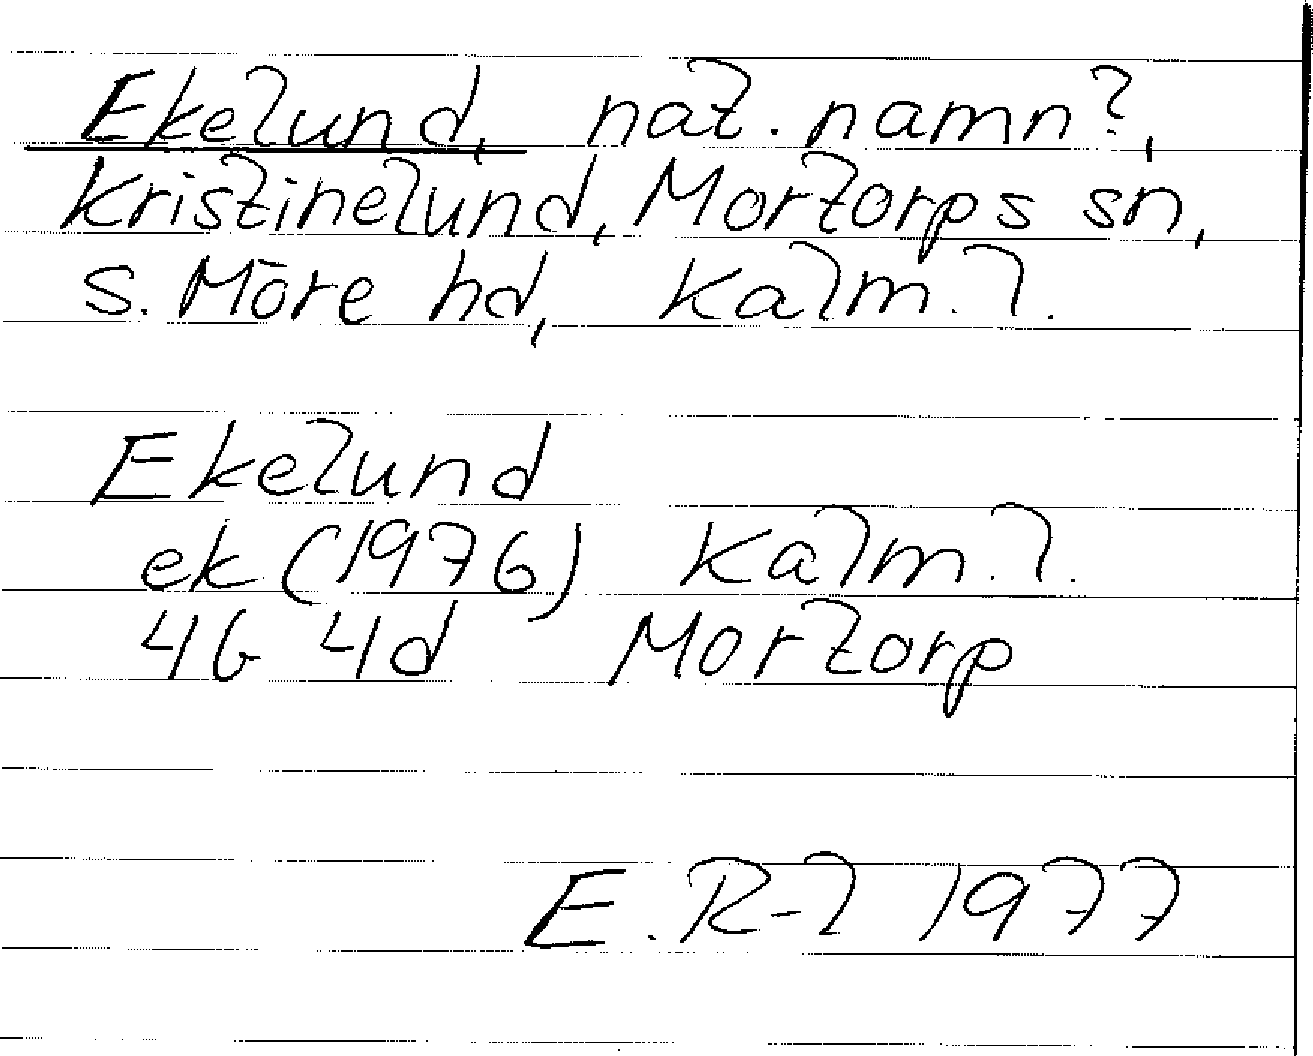 Ekelund, nat. namn?,
Kristinelund, Mortorps sn,
S. Möre hd, Kalm. l.
Ekelund
ek (1976) Kalm. l.
4G 4d Mortorp
E. R-l 1977